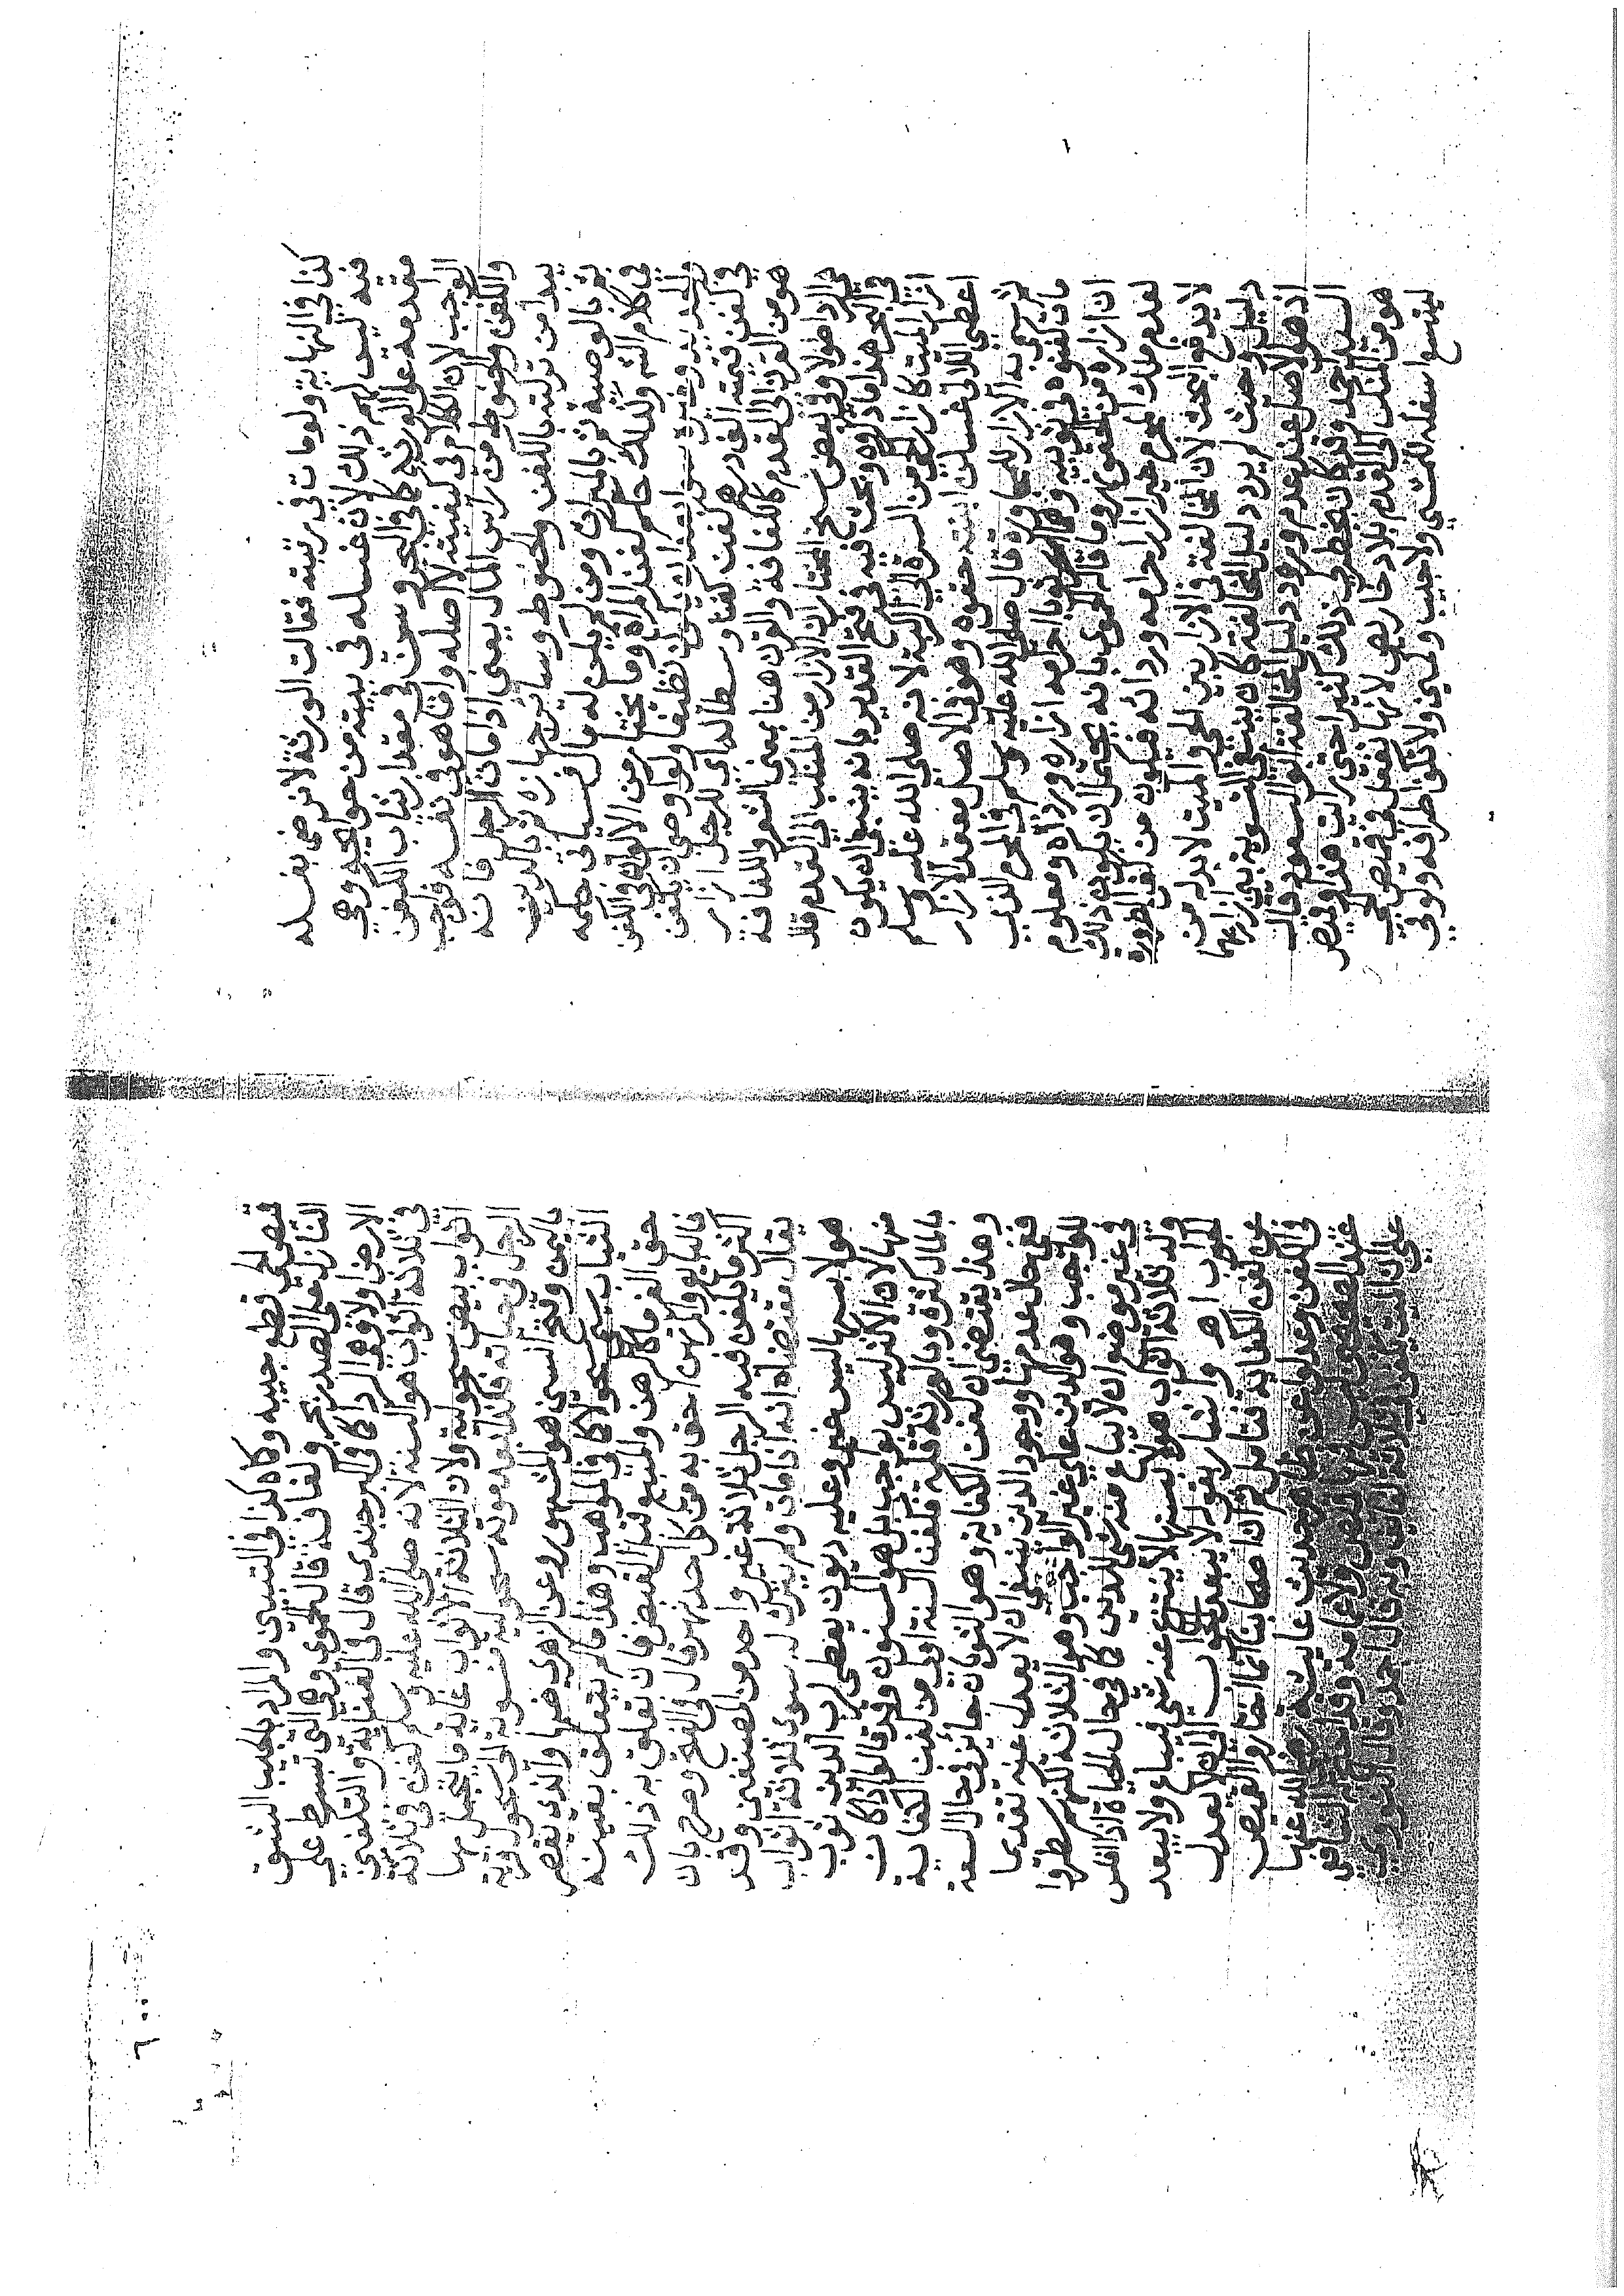 كذا في النهاية ولو مات في تربته فقالت الورثة لا نرضى بغسله
فيه ليس لهم ذلك لان غسله في بيته من حوائجه وهي
مقدمة على الورثة كما في البحر وسن في مقدار ثياب الكفن
الواجب لان الكلام في كيفيته لا اصله واما هو في نفسه فواجب
والكفن والحنوط من راس المال يعني اذا مات الرجل فانه
يبدا من تركته بالكفن والحنوط وسائر جهازه ثم بالدين
ثم بالوصية ثم بالميراث ومن لم يكن له مال فسياتي حكمه
في كلام الشه وكذلك حكم كفن المراة وما يختار من الالوان في الكفن
وان نظيفا ولو اوصى ان يكفن
في كفن قيمته الف درهم كفن كفنا وسطا للرجل ازار
هو من القرن الى القدم كاللفافة والقرن هنا بمعنى الشعر واللفافة
هي الرداء طولا وفي بعض نسخ المختار ان الازار من المنكب الى القدم قال
في البحر هذا ما ذكروه وبحث فيه في فتح القدير بانه ينبغي ان يكون
ازار الميت كازار الحي من السرة الى الركبة لانه صلى الله عليه وسلم
اعطى اللاتي غسلن ابنته حقوه وهو في الاصل معقد الازار
ثم سمي به الازار للمجاورة وقال صلى الله عليه وسلم في المحرم الذي
مات كفنوه في ثوبيه وهما ثوبا احرامه ازاره ورداؤه ومعلوم
ان ازاره من الحقو وما قاله الحموي بانه يحتمل ان يكون ذلك
لعدم ملك المحرم غير ازار احرامه وردائه فيكون من كفن الضرورة
لا يدفع البحث لان المخالفة في الازار بين الحي والميت لا بد له من
دليل وحيث لم يرد دليل المخالفة كان ينبغي التسوية بين ازاريهما
اذ هو الاصل عند عدم ورود دليل المخالفة ابو السعود قال
السيد احمد وقد كان يخطر لي ذلك كثيرا حتى رايت هذا وقميص
هو من المنكب الى القدم بلا دخاريص لانها تفعل في قميص الحي
ليتسع اسفله للمشي ولا جيب ولا كمين ولا تكف اطرافه ولو في
قميص الحي قطع جيبه وكاه كذا في التبيين والمراد بالجيب الشق
النازل على الصدر بحر ولفافة قال الحموي وهي التي تبسط على
الارض اولا وهي الرداء كما في البرجندي قال في العناية والتكفين
في ثلاثة اثواب هو السنة لانه صلى الله عليه وسلم كفن في ثلاثة
اثواب بيض سحولية ولان الثلاثة الاثواب غاية ما يتجمل بها
الرجل في حياته فكذا بعد موته سحولية منسوبة الى سحول قرية
باليمن وفتح السين هو المشهور وعن الازهري ضمها والذي بقصر
الثياب يسمى سحولا كما في المواهب وهذا ما لم يتعلق بعينه
حق الغير كالرهن والمبيع قبل القبض فان تعلق به ذلك
فالبائع والمرتهن احق به من كل احد نهر قال في الفتح وصرح بان
اكثر ما يكفن فيه الرجل ثلاثة غير واحد من المصنفين وقد
يقال مقتضاه انه اذا مات ولم يترك له سوى ثلاثة اثواب
هو لابسها ليس غير وعليه ديون يعطى رب الدين ثوب
منها لان الاكثر ليس بواجب بل هو المسنون وقد قالوا اذا كان
بالمال كثرة وبالورثة قلة فكفن السنة اولى من كفن الكفاية
وهذا يقتضي ان كفن الكفاية وهو الثوبان جائز في حال السعة
ففي حال عدمها ووجود الدين ينبغي ان لا يعدل عنه تقديما
للواجب وهو الدين على غير الواجب وهو الثلاثة لكنهم سطروا
في غير موضع انه لا يباع منه شيء للدين كما في حال الحياة اذا افلس
وله ثلاثة اثواب هو لابسها لا ينزع عنه شيء فيباع ولا يبعد
الجواب اهـ واشار بقوله لا يبعد الجواب الى انه لا يعدل
عن كفن الكفاية فتامل ثم ان اصحابنا كما اختاروا القميص
في الكفن وعدلوا عن ظاهر حديث عائشة رضي الله عنها